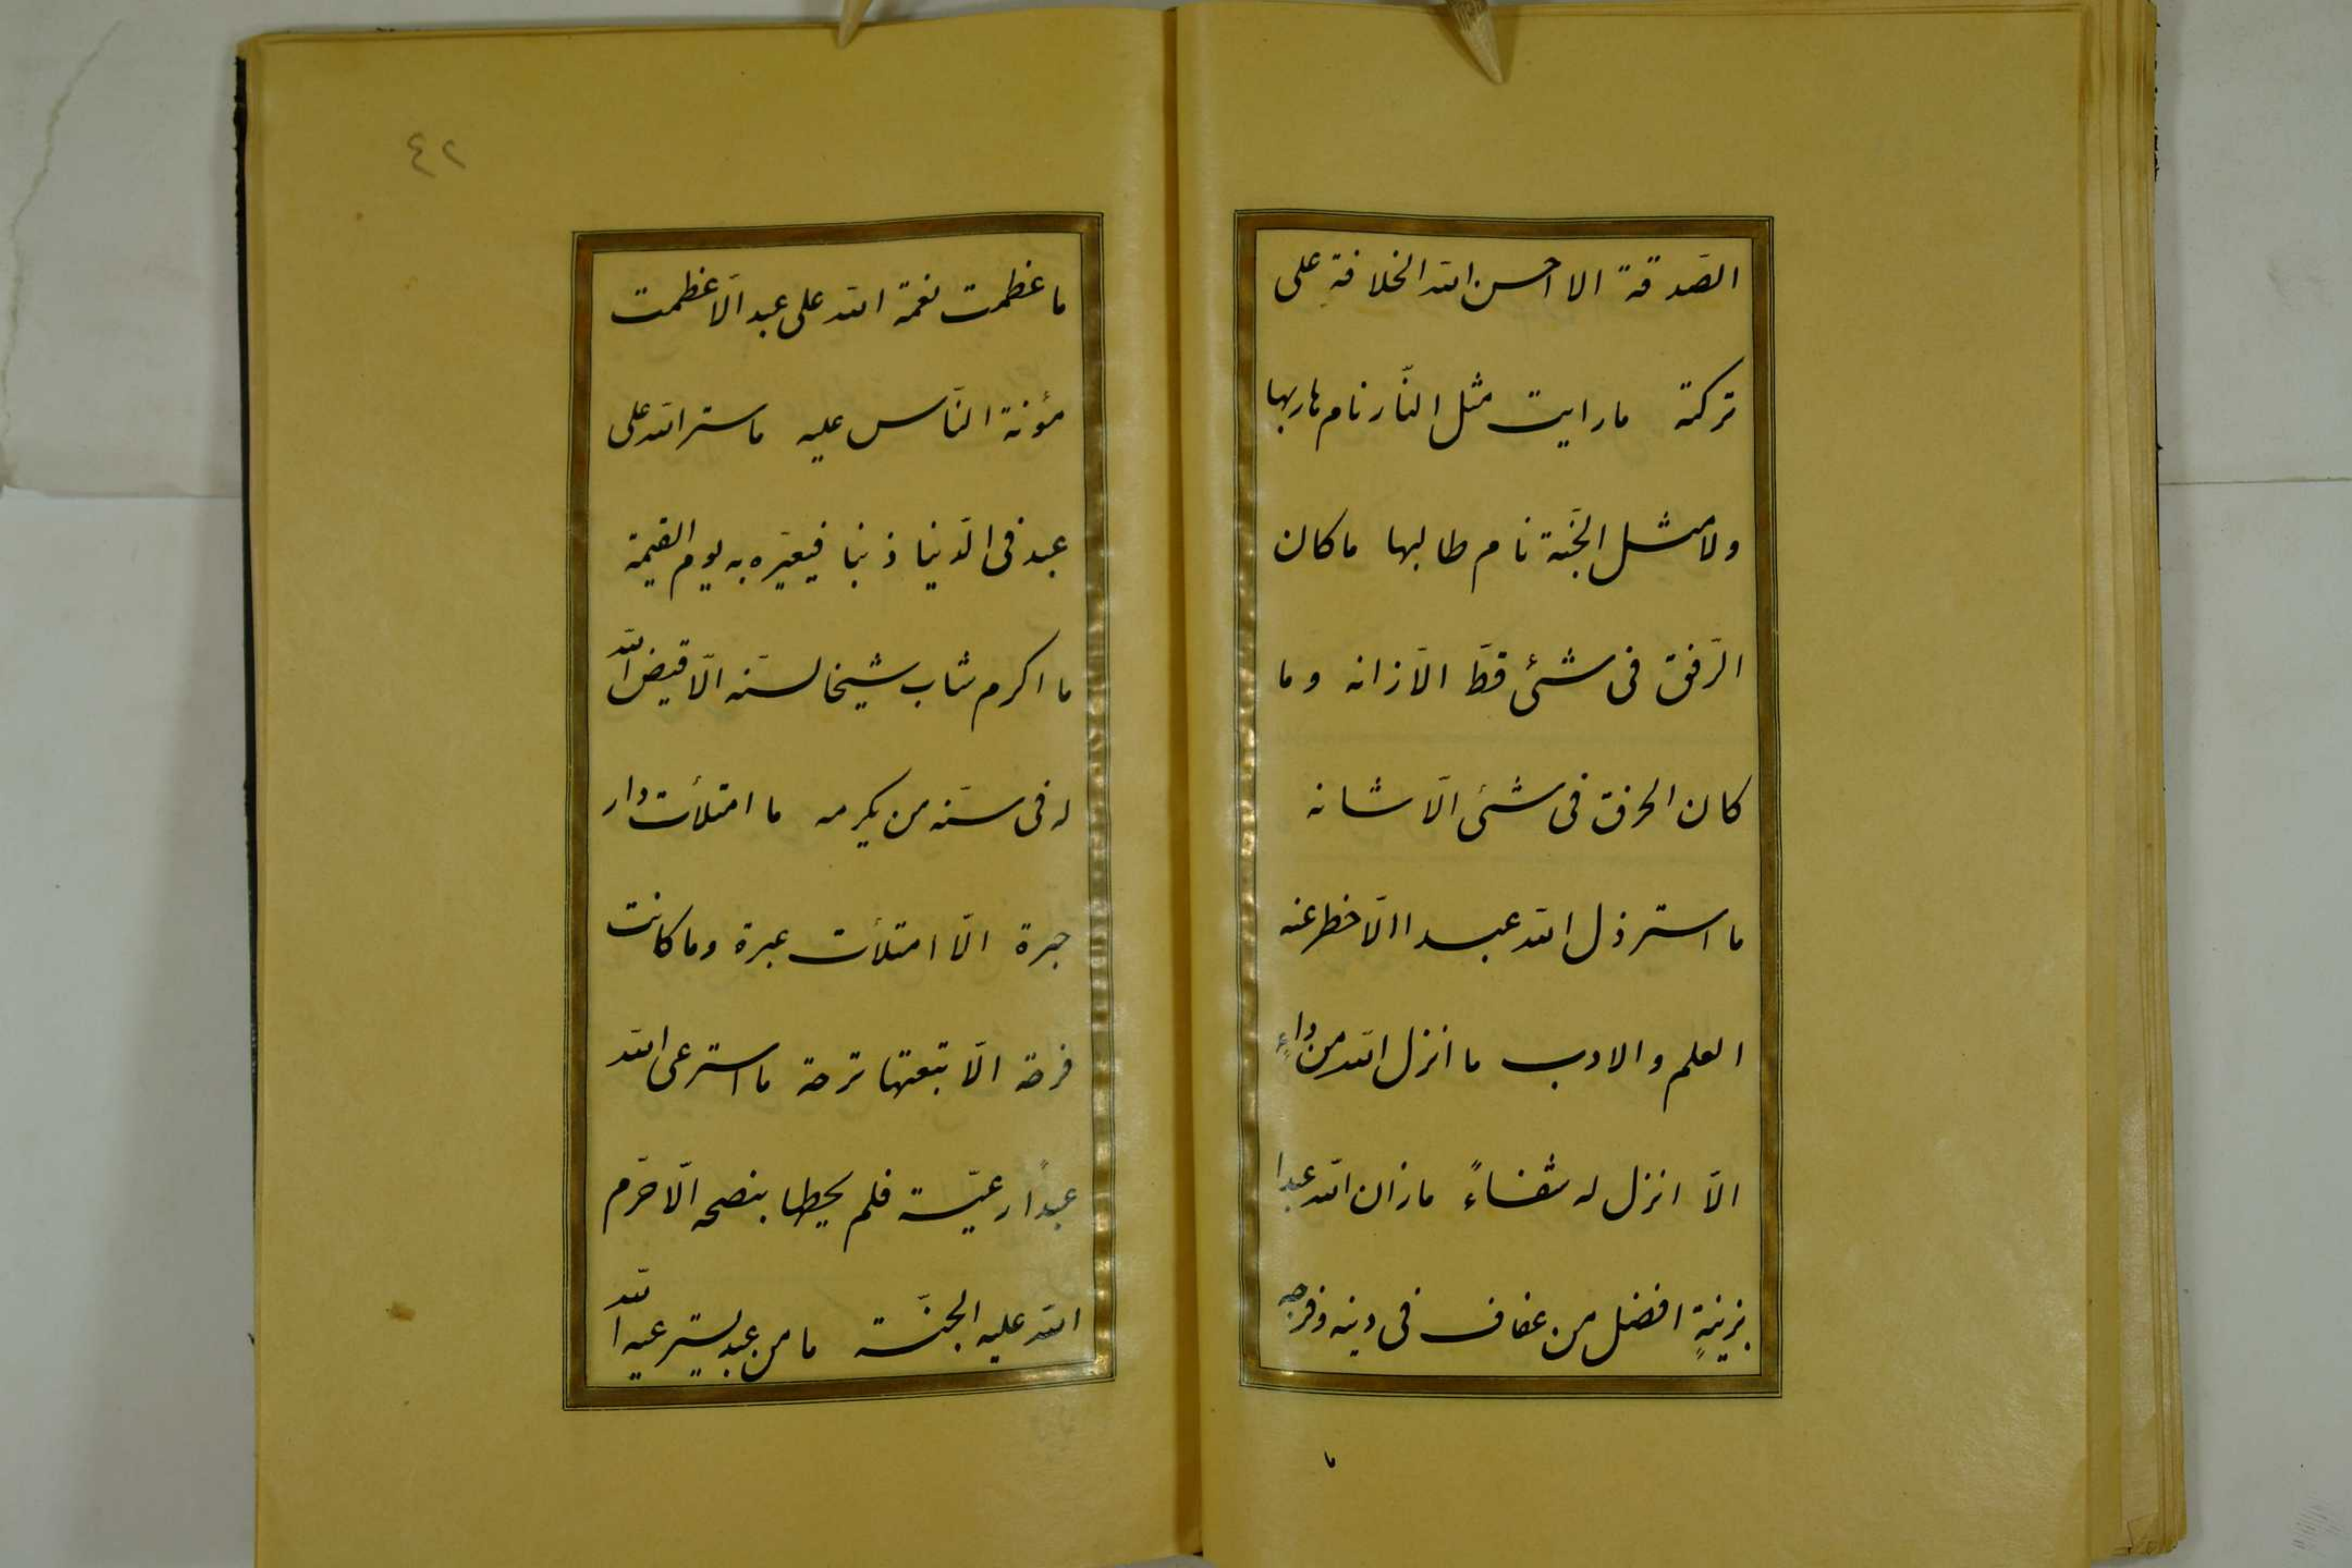 الصّدقة الا احسن الله الخلافة على
تركته ما رايت مثل النّار نام هاربها
ولا مثل الجنّة نام طالبها ما كان
الرّفق فى شئ قطّ الّا زانه وما
كان الخرق فى شئ الّا شانه
ما استرذل الله عبدا الّا حظر عنه
العلم والادب ما أنزل الله من داءٍ
الّا انزل له شفاءً ما زان الله عبدا
بزينةٍ افضل من عفاف فى دينه وفرجه
ما
٤٢
ما عظمت نعمة الله على عبد الّا عظمت
مؤنة النّاس عليه ما ستر الله على
عبد فى الدّنيا ذنبا فيعيّره به يوم القيمة
ما اكرم شاب شيخا لسنّه الّا قيض الله
له فى سنّه من يكرمه ما امتلأت دار
حبرة الّا امتلأت عبرة وما كانت
فرحة الّا تبعتها ترحة ما استرعى الله
عبداً رعيّة فلم يحطها بنصحه الّا حرّم
الله عليه الجنّة ما من عبد يسترعيه الله